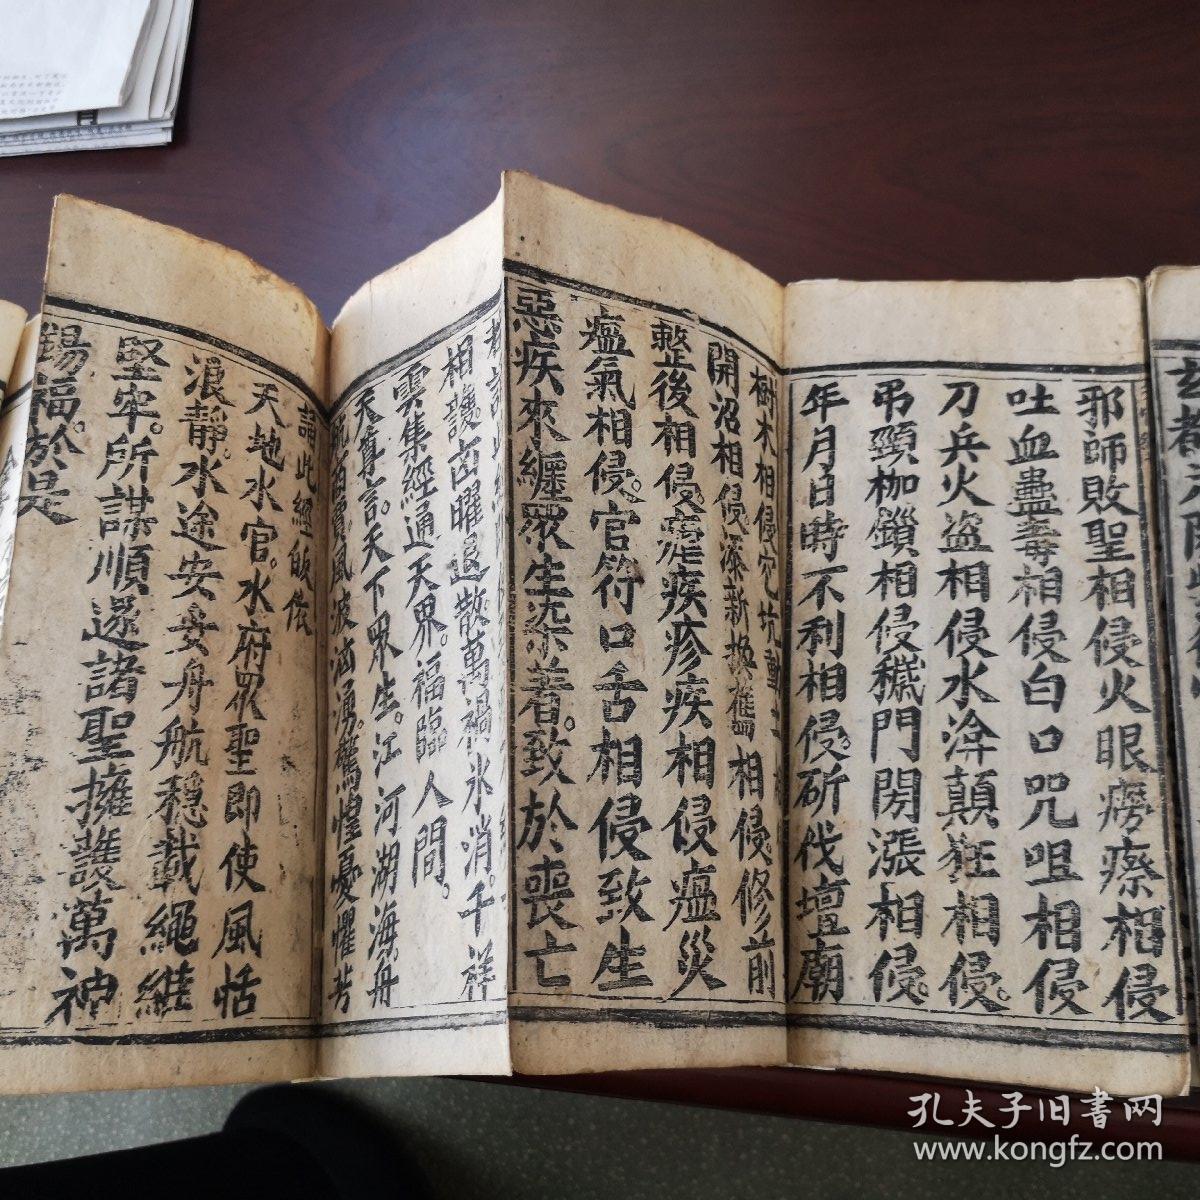 邪師敗聖相侵火眼癆瘵相侵
吐血蠱毒相侵白口咒咀相侵
刀兵火盜相侵水渰顛狂相侵。
吊頸枷鎖相侵穢門閉漲相侵。
年月日時不利相侵。斫伐壇廟
樹木相侵穴坑動土
開沼相侵。添新換舊相侵。修前
整後相侵。瘧疾疹疾相侵瘟災
瘟氣相侵。官符口舌相侵致生
惡疾來纏眾生染著。致於喪亡
相護。凶曜退散。萬禍氷消。千祥
雲集經通天界。福臨人間。
天尊言。天下眾生。江河湖海。舟
風波洶湧。驚惶憂懼若
誦此經皈依
天地水官。水府眾聖即使風恬
浪靜。水途安妥舟航穩載繩維
堅牢。所謀順遂諸聖擁護萬神
錫福。於是
孔夫子旧書网
www.kongfz.com